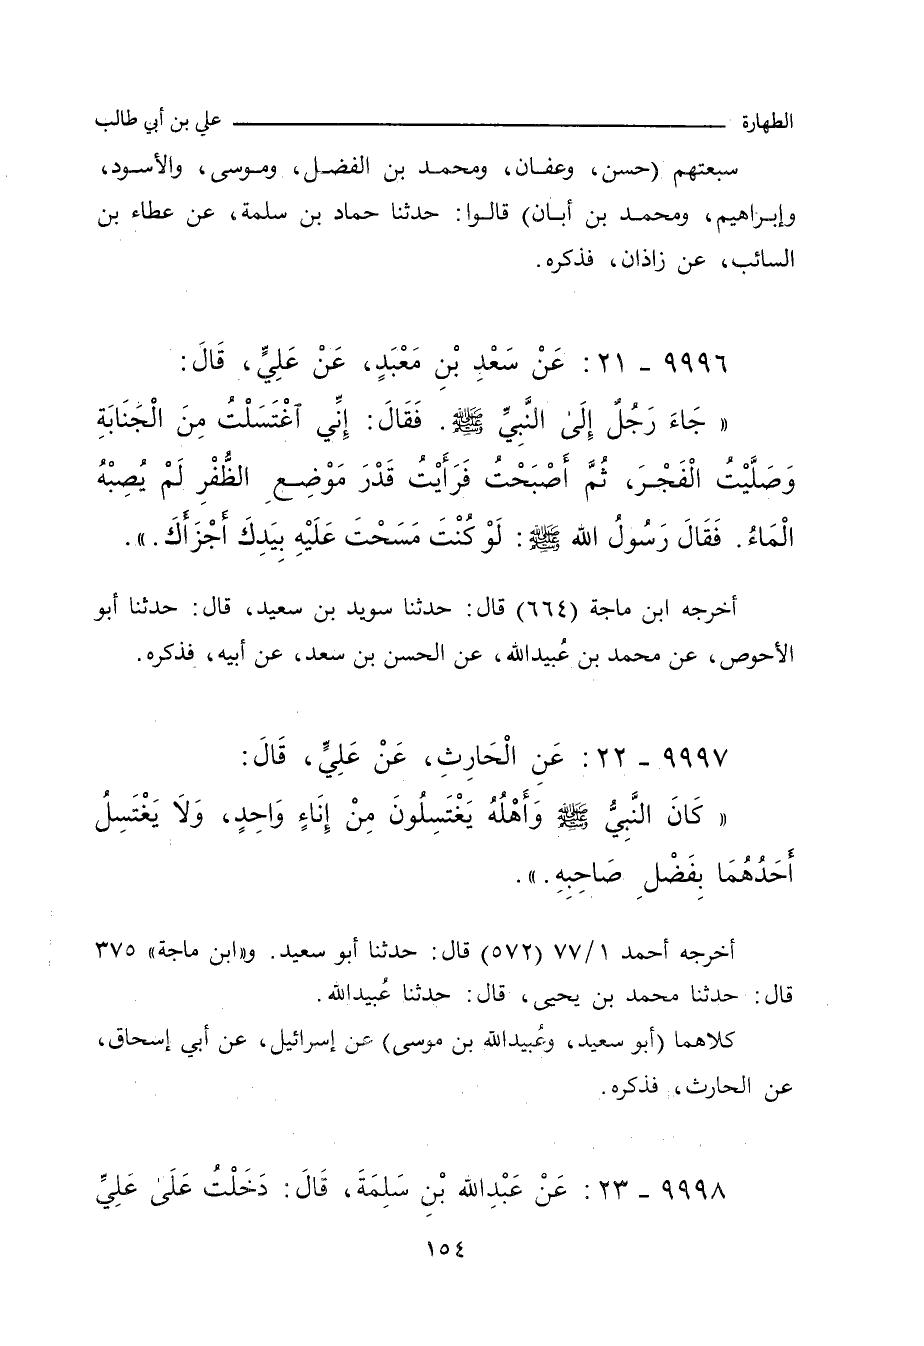 الطهارة ـــــــــــــــــــــ علي بن أبي طالب
سبعتهم (حسن، وعفان، ومحمد بن الفضل، وموسى، والأسود،
وإبراهيم، ومحمد بن أبان) قالوا: حدثنا حماد بن سلمة، عن عطاء بن
السائب، عن زاذان، فذكره.
٩٩٩٦ - ٢١: عَنْ سَعْدِ بْنِ مَعْبَدٍ، عَنْ عَلِيٍّ، قَالَ:
« جَاءَ رَجُلٌ إِلَىٰ النَّبِيِّ ﷺ. فَقَالَ: إِنِّي ٱغْتَسَلْتُ مِنَ الْجَنَابَةِ
وَصَلَّيْتُ الْفَجْرَ، ثُمَّ أَصْبَحْتُ فَرَأَيْتُ قَدْرَ مَوْضِعِ الظُّفْرِ لَمْ يُصِبْهُ
الْمَاءُ. فَقَالَ رَسُولُ الله ﷺ: لَوْ كُنْتَ مَسَحْتَ عَلَيْهِ بِيَدِكَ أَجْزَأَكَ.».
أخرجه ابن ماجة (٦٦٤) قال: حدثنا سويد بن سعيد، قال: حدثنا أبو
الأحوص، عن محمد بن عُبيدالله، عن الحسن بن سعد، عن أبيه، فذكره.
٩٩٩٧ - ٢٢: عَنِ الْحَارِثِ، عَنْ عَلِيٍّ، قَالَ:
« كَانَ النَّبِيُّ ﷺ وَأَهْلُهُ يَغْتَسِلُونَ مِنْ إِنَاءٍ وَاحِدٍ، وَلَا يَغْتَسِلُ
أَحَدُهُمَا بِفَضْلِ صَاحِبِهِ.».
أخرجه أحمد ١/٧٧ (٥٧٢) قال: حدثنا أبو سعيد. و«ابن ماجة» ٣٧٥
قال: حدثنا محمد بن يحيى، قال: حدثنا عُبيدالله.
كلاهما (أبو سعيد، وعُبيدالله بن موسى) عن إسرائيل، عن أبي إسحاق،
عن الحارث، فذكره.
٩٩٩٨ - ٢٣: عَنْ عَبْدِالله بْنِ سَلِمَةَ، قَالَ: دَخَلْتُ عَلَىٰ عَلِيِّ
١٥٤